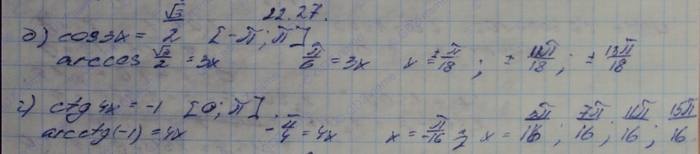 22.27.
б) cos3x = √3/2 [-π; π]
arccos √3/2 = 3x π/6 = 3x x = ±π/18 ; ± 11π/18 ; ± 13π/18
г) ctg 4x = -1 [0; π].
arcctg(-1) = 4x -π/4 = 4x x = π/-16 ; x = 3π/16 ; 7π/16 ; 11π/16 ; 15π/16